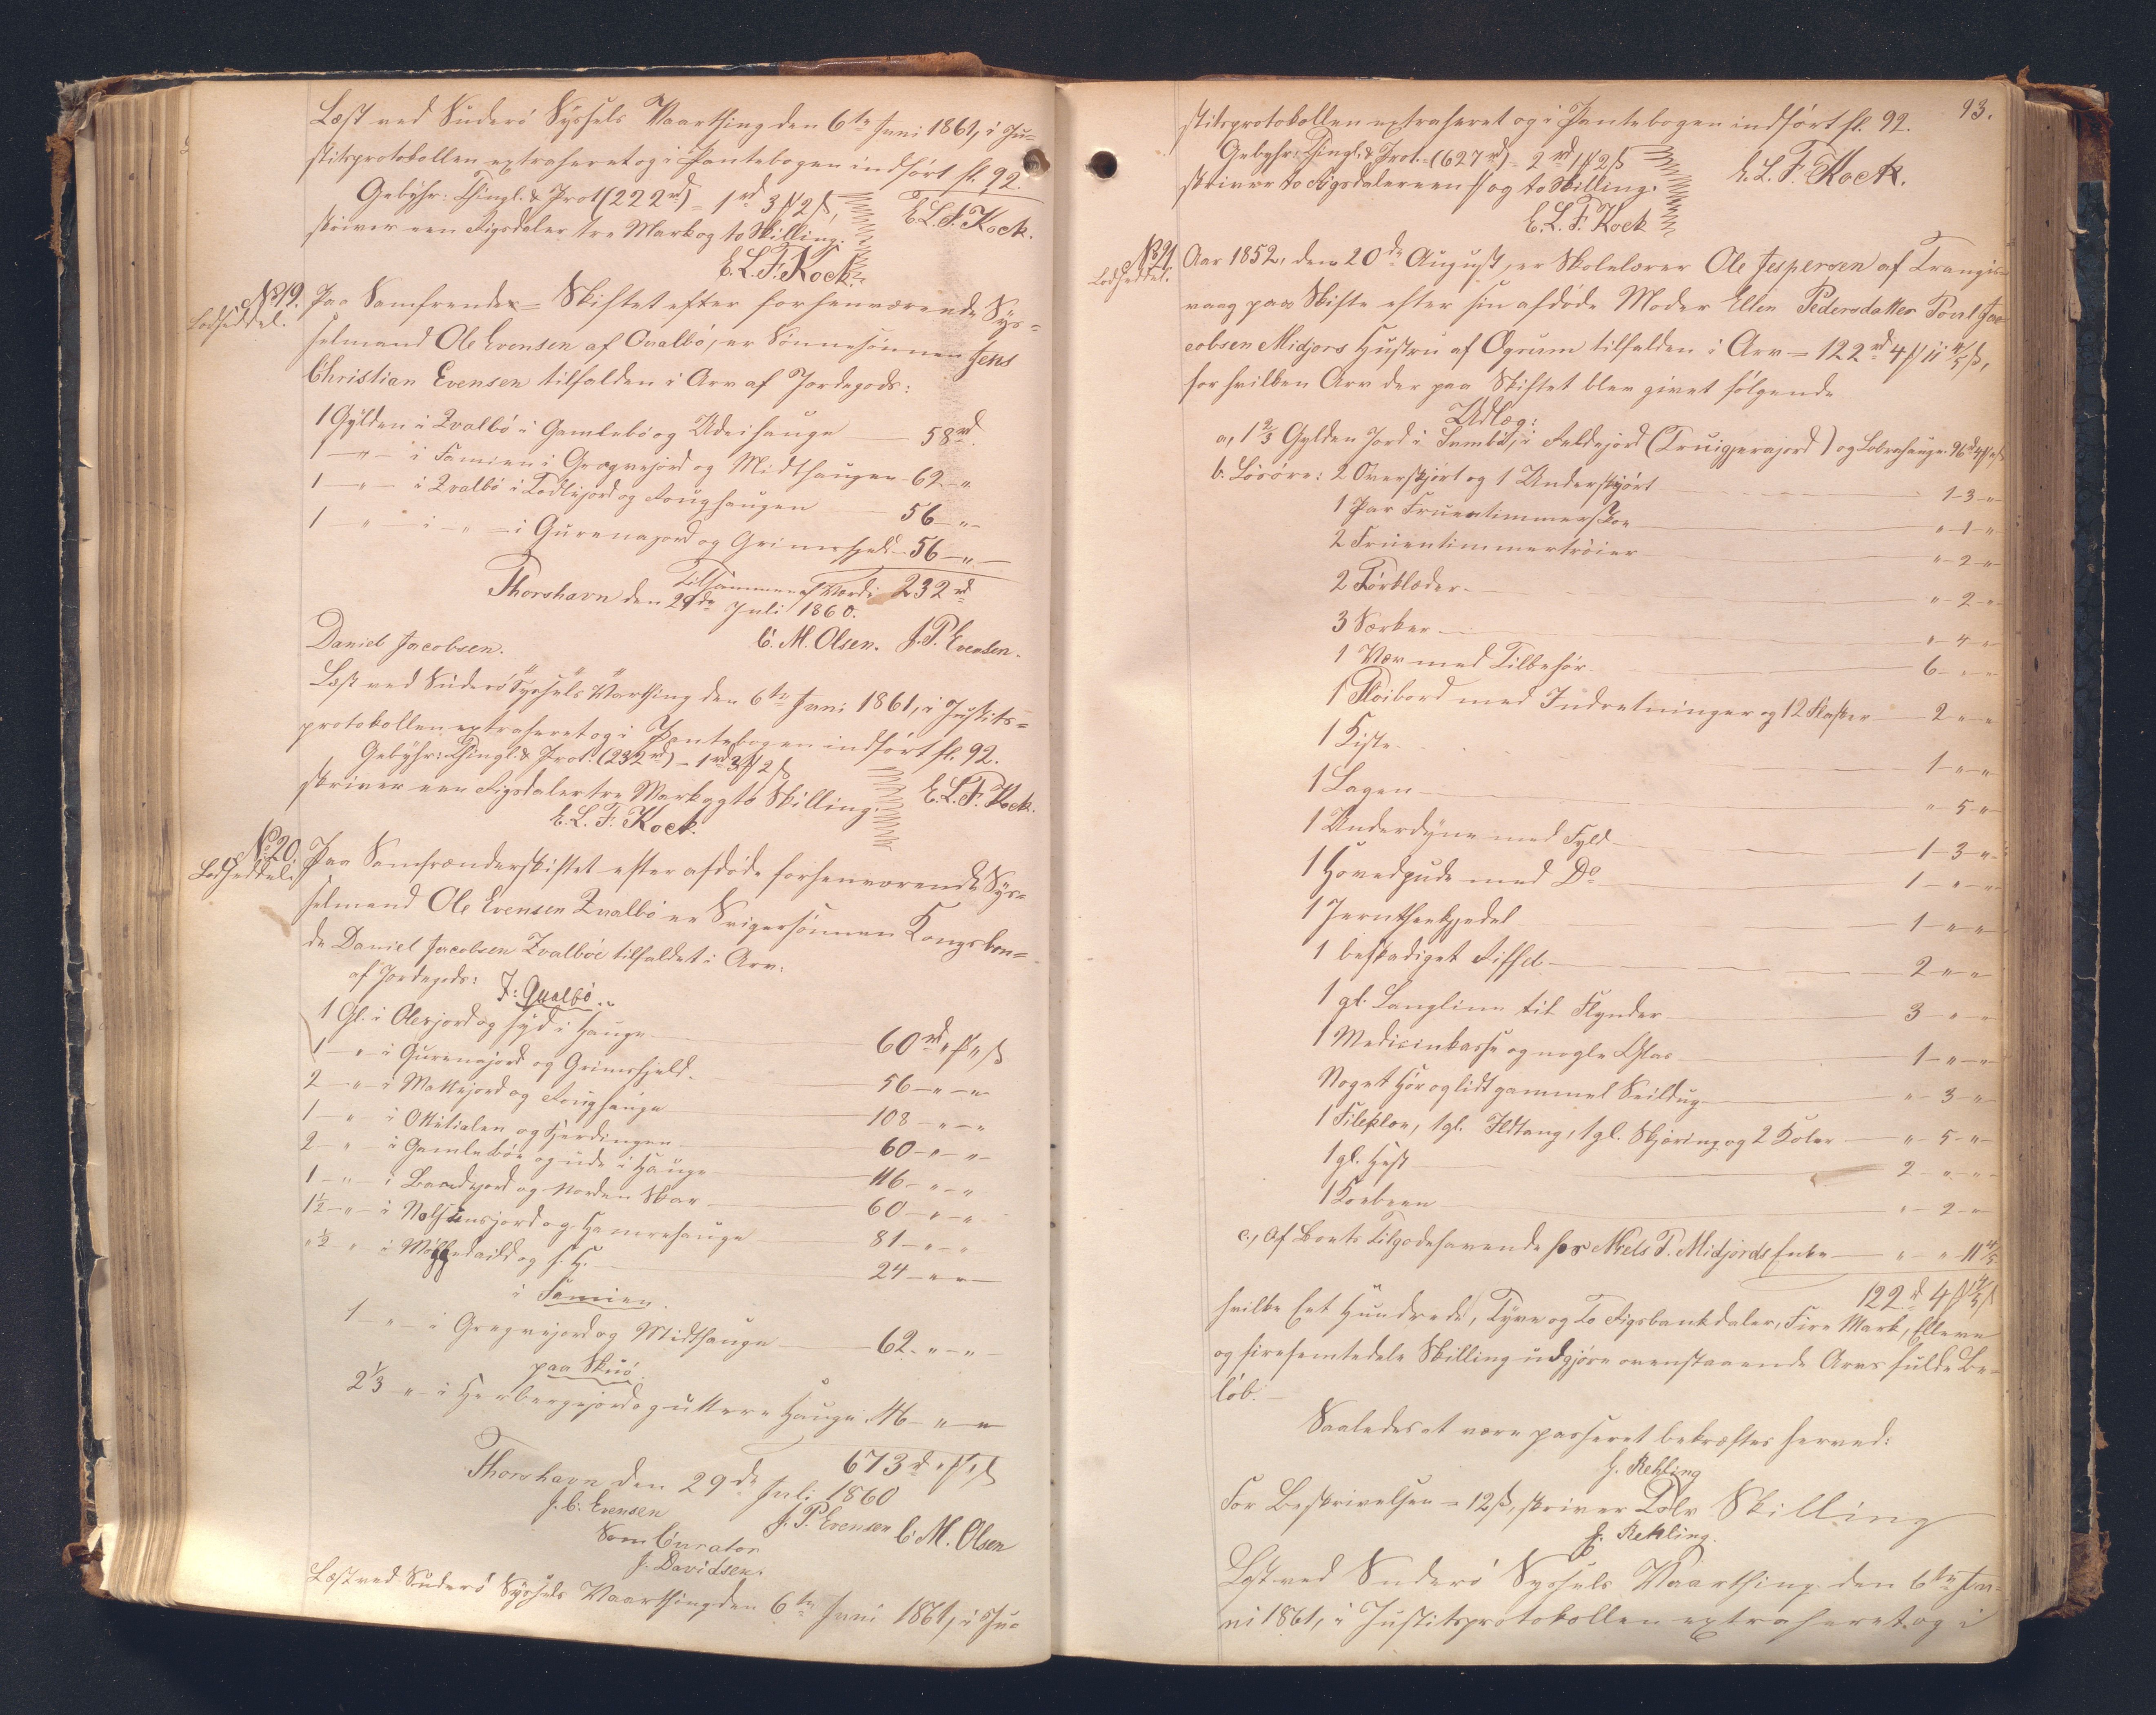 Læst ved Süderö Syssels Vaarthing den 6te Juni 1861, i Ju-
stitsprotokollen extraheret og i Pantebogen indført fl. 92.
Gebyhr: Thingl. & Prot (222 rd) = 1 rd 3 ß 2 ß,
skriver een Rigsdaler tre Mark og to Skilling.
E. L. F. Kock.
E. L. F. Kock.
No 19.
Lodseddel.
Paa Samfrende= Skiftet efter forhenværende Sys=
selmand Ole Evensen af Qvalbö, er Sönnesönnen Jens
Christian Evensen tilfalden i Arv af Jordegods:
1 Gylden i Qvalbö i Gamlebö og Udeihauge — 58 rd.
1 —"— i Famien i Gragvejord og Midthaugen — 62 — "
1 —"— i Qvalbö i Todlejord og Foughaugen — 56 — " —
1 — " — i — " — i Gurenajord og Grimsfjeld — 56 — " —
Tilsammen af Værdi 232 rd
Thorshavn den 29de Juli 1860.
Daniel Jacobsen.
C. M. Olsen. J. P. Evensen.
Læst ved Süderö Syssels Varthing den 6te Juni 1861, i Justits=
protokollen extraheret og i Pantebogen indført fl. 92.
Gebyhr: Thingl. & Prot. (232 rd) = 1 rd 3 ß 2 ß
skriver een Rigsdaler tre Mark og to Skilling.
E. L. F. Kock.
E. L. F. Kock.
No 20.
Lodseddel.
Paa Samfrænderskiftet efter afdøde forhenværende Sys=
selmand Ole Evensen Qvalbö er Svigersönnen Kongsbon=
de Daniel Jacobsen Qvalböe tilfaldet i Arv:
af Jordegods: I: Qvalbö.
1 Gl. i Olesjord og syd i Hauge — 60 rd " ß " ß
1 — " — i Gurenajord og Grimsfjeld — 56 — " — "
2 — " — i Mattejord og Foughauge — 108 — " — "
1 — " — i og Gjerdingen — 60 — " — "
2 — " — i Gamleböe og ude i Hauge — 116 — " — "
1 — " — i Baardsjord og Norden Skar — 60 — " — "
1½ — " — i jord og Hamrehauge — 81 — " — "
" ½ " — i og s. H. — 24 — " — "
i Famien.
1 — " — i Gragvejord og Midthauge — 62 — " — "
paa Skuö.
2⅓ — " — i Herbergejord og uttere Hauge. 46 — " — "
673 rd " ß " ß
Thorshavn den 29de Juli 1860
J. C. Evensen
J. P. Evensen C. M. Olsen
Som Curator
J. Davidsen.
Læst ved Suderö Syssels Vaarthing den 6te Juni 1861, i Ju=
93.
stitsprotokollen extraheret og i Pantebogen indført fl. 92.
Gebyhr: Thingl. & Prot. = (627 rd) = 2 rd 1 ß 2 ß
skriver to Rigsdaler een ß og to Skilling.
E. L. F. Kock.
E. L. F. Kock
No 21.
Lodseddel.
Aar 1852, den 20de August, er Skolelærer Ole Jespersen af Trangis-
vaag paa Skifte efter sin afdøde Moder Ellen Pedersdatter Poul Ja-
cobsen Midjors Hustru af Øgrum tilfalden i Arv = 122 rd 4 ß 11 4/5 ß,
for hvilken Arv der paa Skiftet blev givet følgende
Udlæg:
a, 1 2/3 Gylden Jord i Sumbö, i Feldejord (Truigjerajord) og Lobrahauge. 96 rd 4 ß " ß
b. Løsøre: 2 Overskjørt og 1 Underskjørt — 1 – 3 – "
1 Par Fruentimmerskoe — " – 1 – "
2 Fruentimmertröier — " – 2 – "
2 Förklæder — " – 2 – "
3 Særker — " – 4 – "
1 Væv med Tilbehör — 6 – " – "
1 Flöibord med Indretninger og 12 Flasker — 2 – " – "
1 Kiste — 1 – " – "
1 Lagen — " – 5 – "
1 Underdyne med Fyld — 1 – 3 – "
1 Hovedpude med Do — 1 – " – "
1 Jernthekjedel — 1 – " – "
1 beskadiget Riffel — 2 – " – "
1 gl. Langline til Flynder — 3 – " – "
1 Medicinkasse og nogle Glas — 1 – " – "
Noget Hör og lidt gammel Seildug — " – 3 – "
1 Fileklov, 1 gl. Ildtang, 1 gl. Skjæring og 2 Koler — " – 5 – "
1 gl. Hest — 2 – " – "
1 — " – 2 – "
c., Af Boets Tilgodehavende hos Niels P. Midjords Enke — " – " – 11 4/5
122 rd 4 ß 11 4/5 ß
hvilke Eet Hundrede, Tyve og To Rigsbankdaler, Fire Mark, Elleve
og firefemtedele Skilling udgjøre ovenstaaende Arvs fulde Be-
løb. —
Saaledes at være passeret bekræftes herved:
H. Rehling
For Beskrivelsen = 12 ß, skriver Tolv Skilling
H. Rehling.
Læst ved Suderö Syssels Vaarthing den 6te Ju-
ni 1861, i Justitsprotokollen extraheret og i